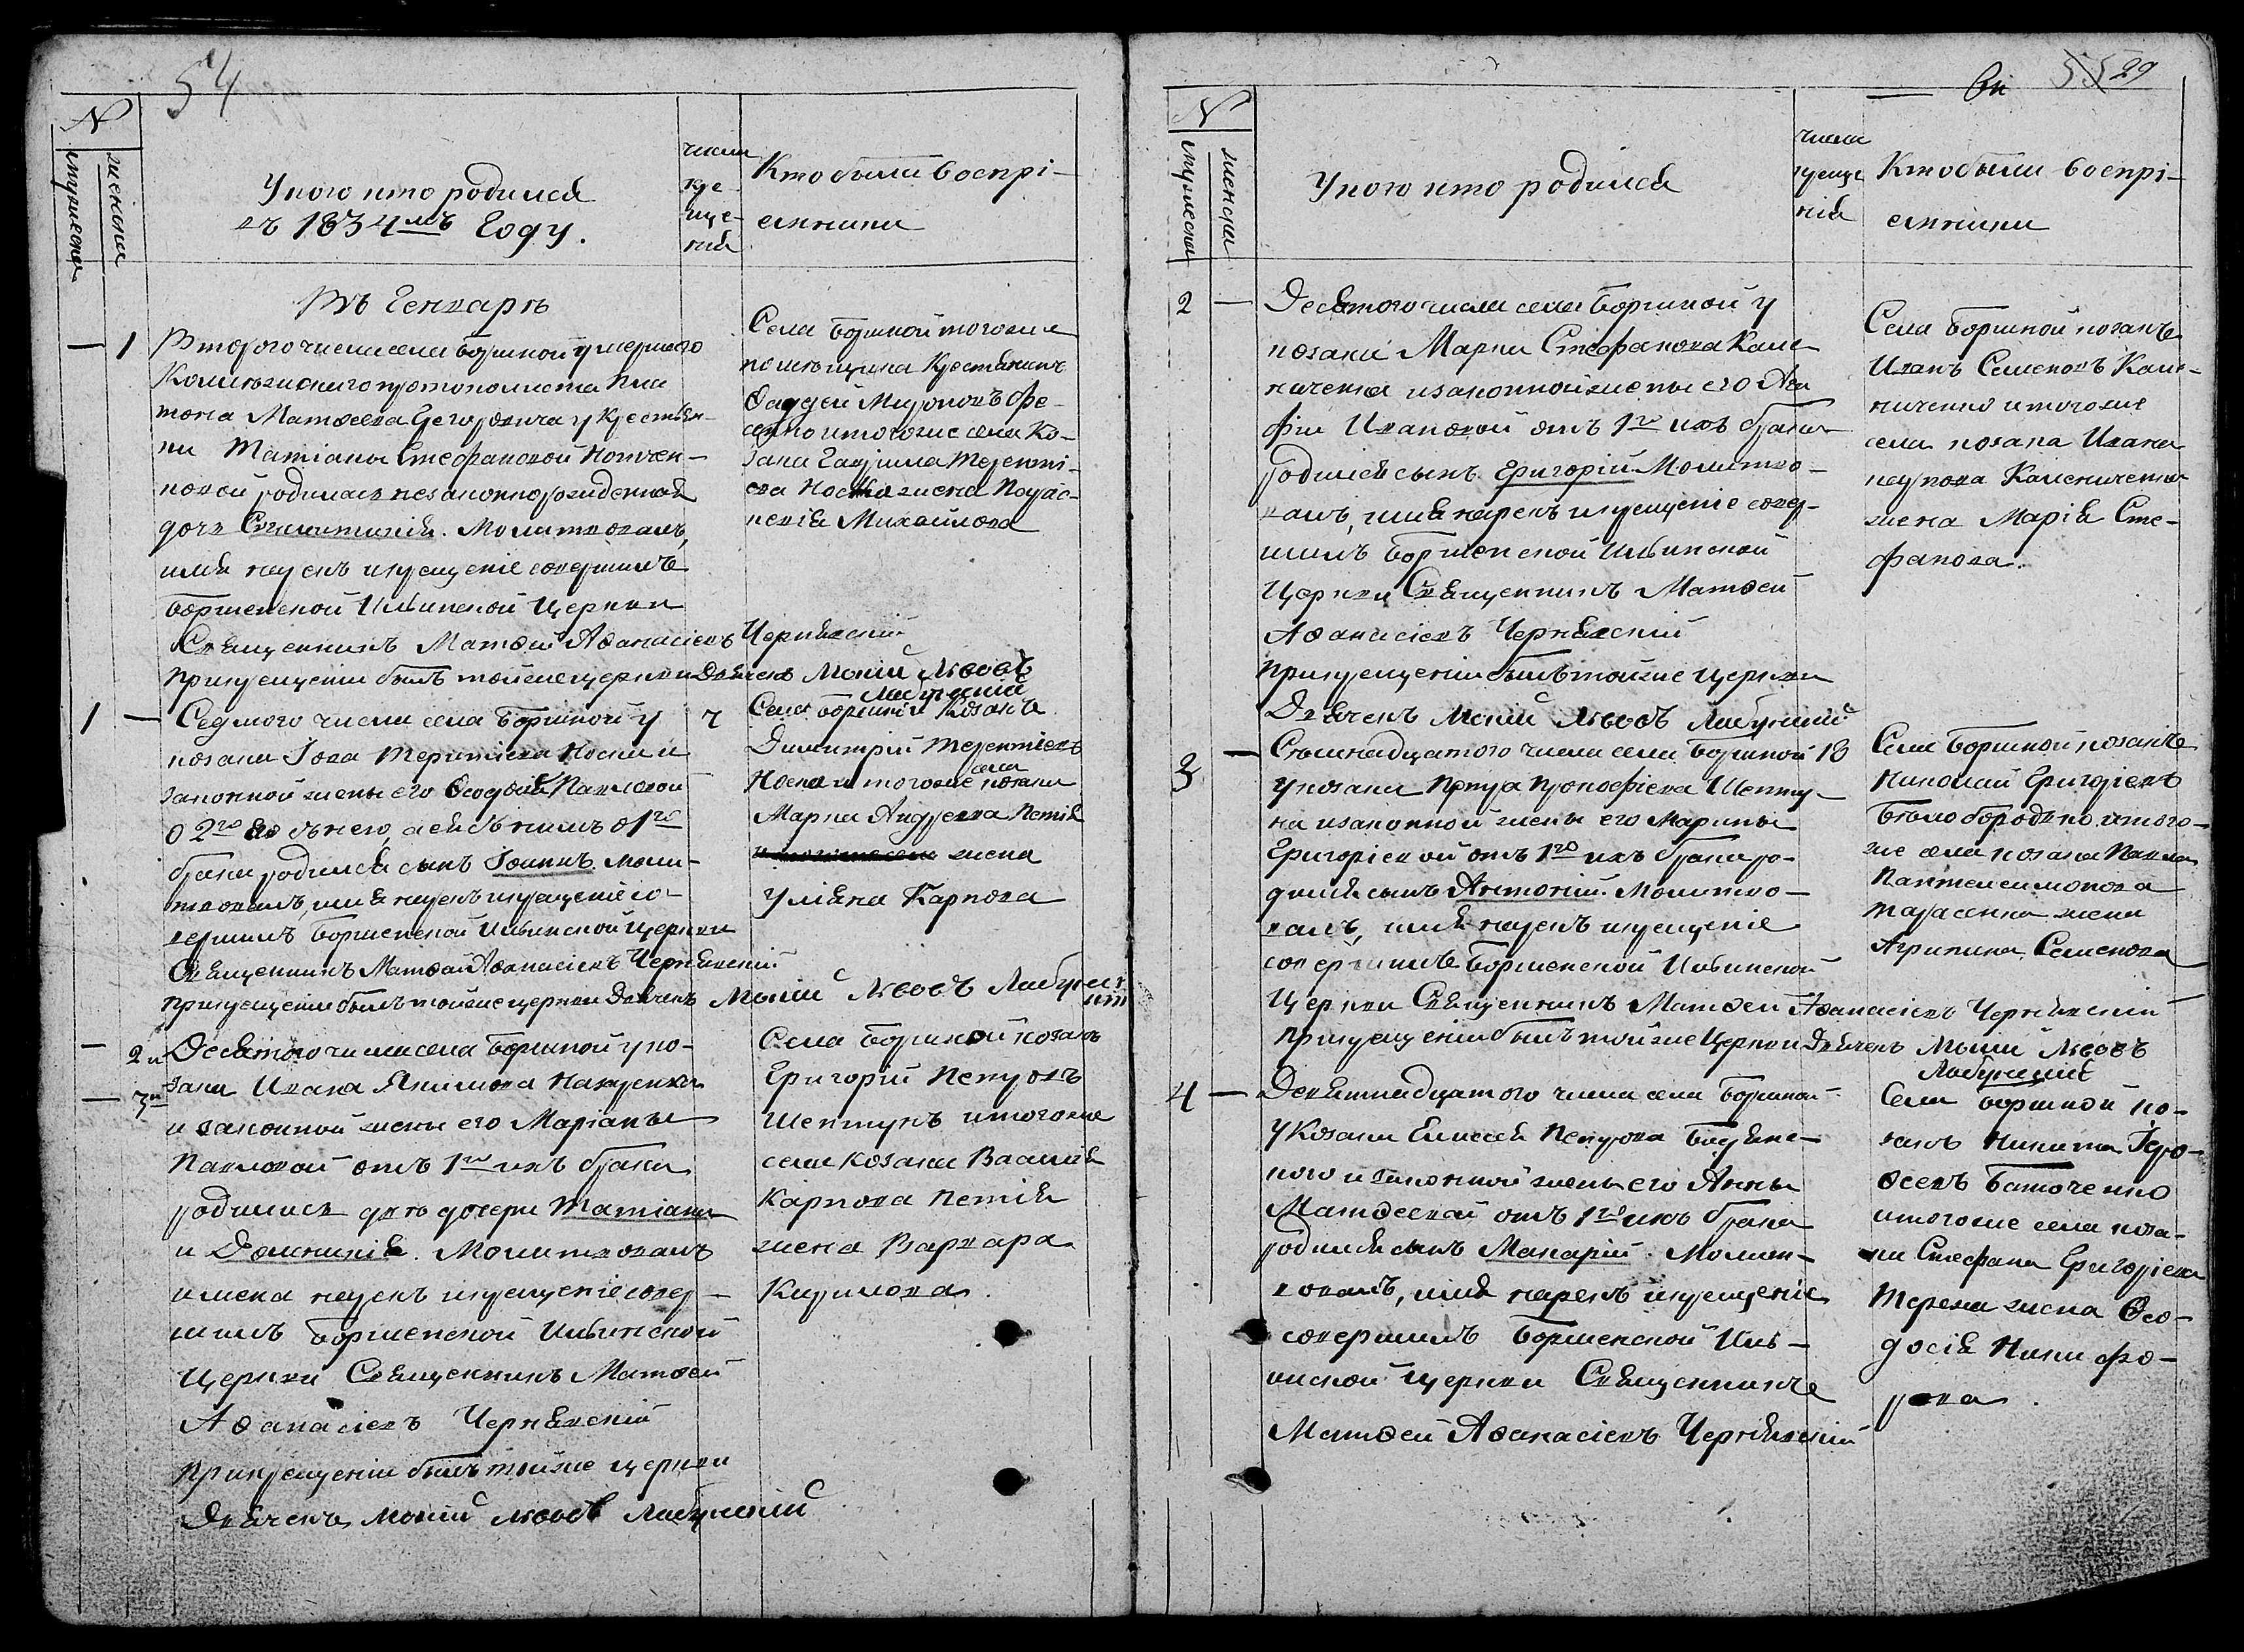 54
N
мужеска
женска
У кого кто родился
въ 1834мъ Году.
числа
кре-
ще-
нія
Кто были воспрі-
емники
Въ Генваръ
— 1
Втораго числа села Боршной умершаго
Коллежскаго протоколиста Пла
тона Матѳеева Григоровича у крестьян-
ки Татіаны Стефановой
новой родилась незаконнорожденная
дочь Сигклитикія. Молитвовалъ,
имя нарекъ и крещеніе совершилъ
Боршенской Ильинской Церкви
Священникъ Матѳей Аѳанасіевъ Чернявскій
При крещеніи былъ той же церкви Дьячекъ Мойсій Львовъ
Лабунскій
Села Боршной тогоже
помѣщика Крестьянинъ
Ѳаддей Мироновъ Фе-
сенко и тогоже села Ко-
зака Гавріила Теренті-
ева Носка жена Парас-
кевія Михайлова
1 —
Седмого числа села Боршной у
козака Іова Терентіева Носка и
законной жены его Ѳеодосіи Павловой
о 2го въ него, а ея съ нимъ о 1го
брака родился сынъ Іоаннъ. Моли-
твовалъ, имя нарекъ и крещеніе со-
вершилъ Боршенской Ильинской Церкви
Священникъ Матѳей Аѳанасіевъ Чернявскій
При крещеніи былъ той же церкви Дьячекъ Мойсій Львовъ Лабунскій
7
Села Боршной Козакъ
Димитрій Терентіевъ
Носка и тогоже села козака
Марка Андреева Петія
жена
Уліяна Карпова
— 2я
— 3я
Десятаго числа села Боршной у ко-
зака Ивана Якимова Назаренка
и законной жены его Маріаны
Павловой отъ 1го ихъ брака
родились двѣ дочери Татіана
и Домникія. Молитвовалъ
имена нарекъ и крещеніе совер-
шилъ Боршенской Ильинской
Церкви Священникъ Матѳей
Аѳанасіевъ Чернявскій
При крещеніи былъ той же церкви
Дьячекъ Мойсій Львовъ Лабунскій
Села Боршной козакъ
Григорій Петровъ
Шептунъ и тогоже
села козака Василія
Карпова Петія
жена Варвара
Кирилова.
55 29
N
мужеска
женска
У кого кто родился
числа
креще
нія
Кто были воспрі-
емники
2 —
Десятаго числа села Боршной у
козака Марка Стефанова Кале-
ниченка и законной жены его Ага
фіи Ивановой отъ 1го ихъ брака
родился сынъ Григорій. Молитво-
валъ, имя нарекъ и крещеніе совер-
шилъ Боршенской Ильинской
Церкви Священникъ Матѳей
Аѳанасіевъ Чернявскій
При крещеніи былъ той же церкви
Дьячекъ Мойсій Львовъ Лабунскій
Села Боршной козакъ
Иванъ Семеновъ Кале-
ниченко и тогоже
села козака Ивана
Петрова Калениченка
жена Марія Сте-
фанова.
3 —
Осьмнадцатого числа села Боршной
у козака Петра Прокофіева Шепту-
на и законной жены его Марины
Григоріевой отъ 1го ихъ брака ро-
дился сынъ Антоній. Молитво-
валъ, имя нарекъ и крещеніе
совершилъ Боршенской Ильинской
Церкви Священникъ Матѳей Аѳанасіевъ Чернявскій
При крещеніи былъ той же Церкви Дьячекъ Мойсій Львовъ
Лабунскій
18
Села Боршной козакъ
Николай Григоріевъ
Бѣлобородько и того-
же села козака Павла
Пантелеимонова
Тарасенка жена
Агрипина Семенова
4 —
Девятнадцатого числа села Боршной
у Козака Елисея Петрова Бедьне-
ного и законной жены его Анны
Матѳеевой отъ 1го ихъ брака
родился сынъ Макарій. Молит-
вовалъ, имя нарекъ и крещеніе
совершилъ Боршенской Иль-
инской церкви Священникъ
Матѳей Аѳанасіевъ Чернявскій
Села Боршной ко-
закъ Никита Іеро-
ѳеевъ Баточенко
и тогоже села коза-
ка Стефана Григоріева
Терехи жена Ѳео-
досія Никифо-
рова.